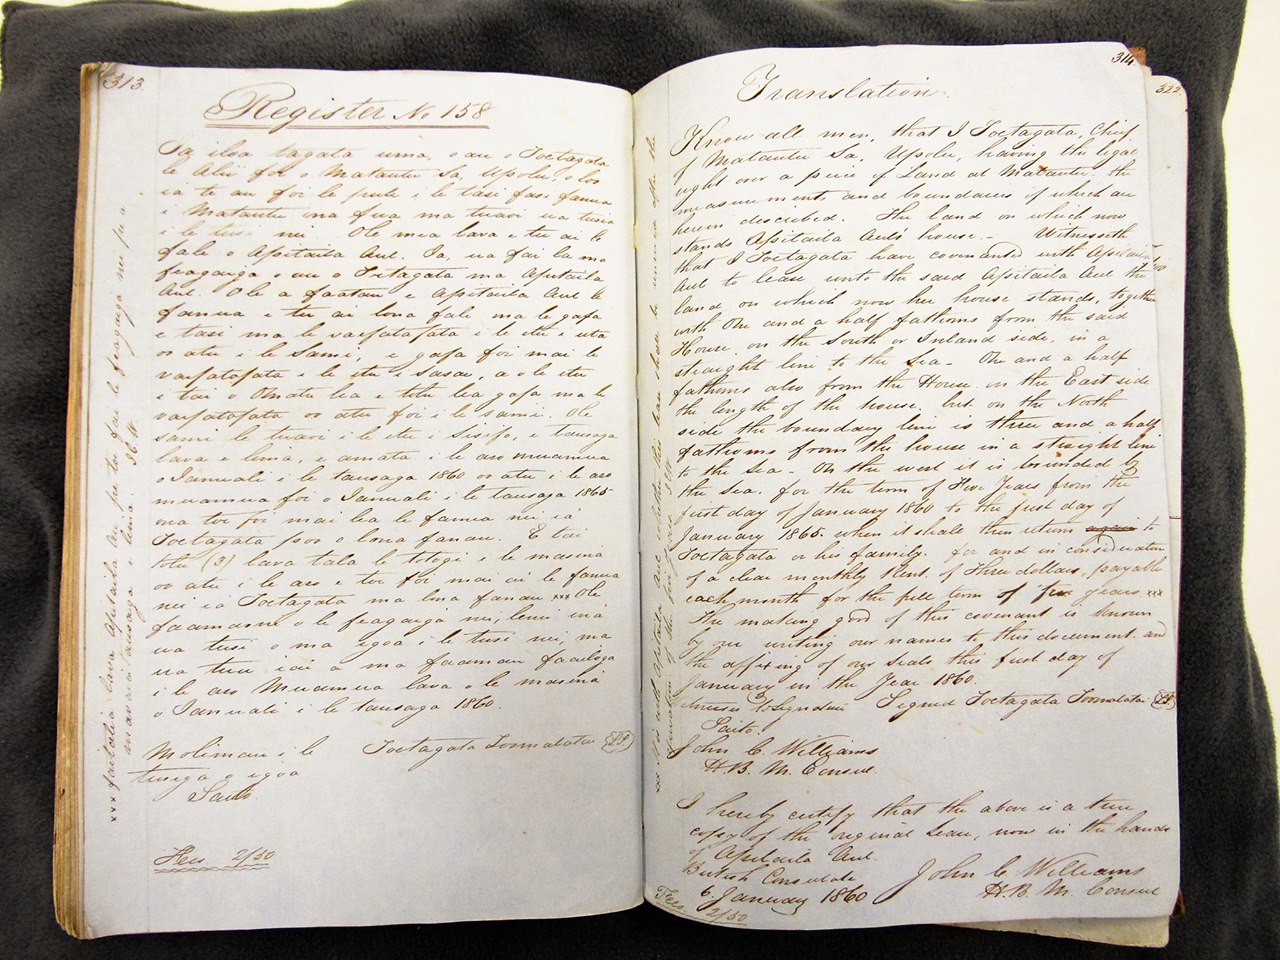 313.
Register No 158
Ia iloa tagata uma, o au o Toetagata
le Alii foi o Matautu Sa, Upolu, o loo
ia te au foi le pule i le tasi fasi fanua
i Matautu ona fua ma tuaoi ua tusia
i le tusi nei. O le mea lava e tu ai le
fale o Apitaila Aul. Ia, ua fai la ma
feagaiga o au o Toetagata ma Apitaila
Aul. O le a faatau e Apitaila Aul le
fanua e tu ai lona fale ma le gafa
e tasi ma le vaefatafata i le itu i uta
oo atu i le Sami, e gafa foi mai le
vaefatafata i le itu i Sasae, a o le itu
i tai o Matu lea e tolu lea gafa ma le
vaefatafata oo atu foi i le sami. O le
sami le tuaoi i le itu i Sisifo, e tausaga
lava e lima, e amata i le aso muamua
o Ianuali i le tausaga 1860 oo atu i le aso
muamua foi o Ianuali i le tausaga 1865
ona toe foi mai lea le fanua nei iá
Toetagata poo o lona fanau. E tai
tolu (3) lava tala le totogi i le masina
oo atu i le aso e toe foi mai ai le fanua
nei iá Toetagata ma lona fanau xxx O le
faamaoni o le feagaiga nei, lenei iná
ua tusi o ma igoa i le tusi nei, ma
ua tuu iai a ma faamau faailoga
i le aso Muamua lava o le masina
o Ianuali i le tausaga 1860.
Molimau i le Toetagata Tonnalata L.S.
tusiga o igoa
Saito.
Fees 2/50
xxx faitalia lava Apitaila Aul pe toe fai le feagaiga nei pe a
mavae tausaga e lima. J.C.W.
314.
Translation.
Know all men, that I Toetagata, Chief
of Matautu Sa, Upolu, having the legal
right over a piece of Land at Matautu, the
measurements and boundaries of which are
herein described. The land on which now
stands Apitaila Aul's house. – Witnesseth
that I Toetagata have covenanted with Apitaila
Aul to lease unto the said Apitaila Aul the
land on which now her house stands, together
with One and a half fathoms from the said
House, on the South or Inland side, in a
straight line to the Sea – One and a half
fathoms also from the House, on the East side
the length of the house, but on the North
side the boundary line is three and a half
fathoms from the house in a straight line
to the Sea – On the west it is bounded by
the Sea. for the term of Five Years from the
first day of January 1860 to the first day of
January 1865. when it shall then return again to
Toetagata or his family. for and in consideration
of a clear monthly Rent of three dollars, payable
each month for the full term of Five years. xxx
The making good of this covenant is known
by our writing our names to this document and
the affixing of our Seals this first day of
January in the Year 1860.
Witness to Signature Signed Toetagata Tonnalata L.S.
Saito.
John C Williams
H.B.M. Consul.
I hereby certify that the above is a true
copy of the original Lease, now in the hands
of Apitaila Aul.
British Consulate John C Williams
6 January 1860 H.B.M. Consul
Fees 2/50
322